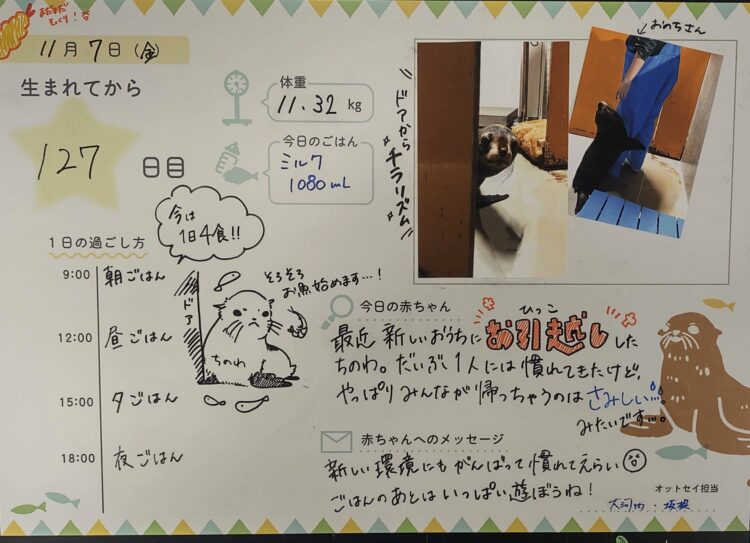 まだまだ
もぐり！
11月7日（金）
生まれてから
127日目
体重
11.32 kg
今日のごはん
ミルク
1080mL
ドアから
チラリズム
おのちさん
今は
1日4食!!
1日の過ごし方
9:00 朝ごはん
12:00 昼ごはん
15:00 夕ごはん
18:00 夜ごはん
ドア
ちのわ
そろそろ
お魚始めます…！
今日の赤ちゃん
ひっこ
最近新しいおうちにお引越しした
ちのわ。だいぶ1人には慣れてきたけど、
やっぱりみんなが帰っちゃうのはさみしい…。
みたいです…。
赤ちゃんへのメッセージ
新しい環境にもがんばって慣れてえらい
ごはんのあとはいっぱい遊ぼうね！
オットセイ担当
大河内・坂根